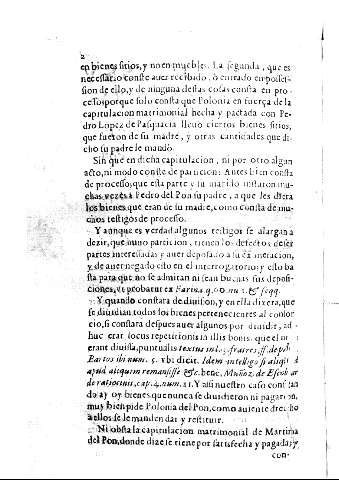 2
en bienes sitios, y no en muebles. La segunda, que es
necessario conste auer recebido, ò entrado en posses-
sion de ello, y de ninguna destas cosas consta en pro-
cesso: porque solo consta que Polonia en fuerça de la
capitulacion matrimonial hecha y pactada con Pe-
dro Lopez de Pasquacia lleuò ciertos bienes sitios,
que fueron de su madre, y otras cantidades que di-
cho su padre le mandò.
Sin que en dicha capitulacion, ni por otro algun
acto, ni modo conste de particion: Antes bien consta
de processo, que esta parte y su marido instaron mu-
chas vezes à Pedro del Pon su padre, a que les diera
los bienes que eran de su madre, como consta de mu-
chos testigos de processo.
Y aunque es verdad algunos testigos se alargan a
dezir, que huuo particion, tienen los defectos de ser
partes interessadas y auer deposado a su
y de auer negado esto en el interrogatorio; y esto ba
sta para que no se admitan ni sean buenas sus deposi-
ciones, vt probatur ex Farina. q. 60. nu. &amp; seqq.
Y quando constara de diuision, y en ella dixera, que
se diuidian todos los bienes pertenecientes al consor
cio, si constara despues auer algunos por diuidir, ad-
huc erat locus repetitioni in illis bonis, que non
erant diuissa, puntualis textus in l. 3. fratres, ff. de pact.
Bartos ibi num. 5. vbi dicit. Idem intellige si aliquid
apud aliquem remansisse &c. bene, Muñoz. de Escobar
de ratiocinis, cap. 4. num. 21. Y assi nuestro caso constan
do ay oy bienes que nunca se diuidieron ni pagaron,
muy bien pide Polonia del Pon, como auiente drecho
a ellos se le manden dar, y restituir.
Ni obsta la capitulacion matrimonial de Martina
del Pon, donde dize se tiene por satisfecha y pagada; y
con-